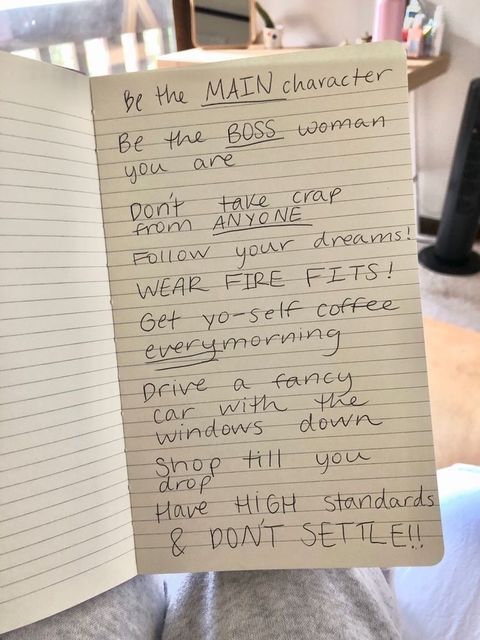 Be the MAIN character
Be the BOSS woman
you are
Don't take crap
from ANYONE
Follow your dreams!
WEAR FIRE FITS!
Get yo-self coffee
everymorning
Drive a fancy
car with the
windows down
Shop till you
drop
Have HIGH standards
& DON'T SETTLE!!